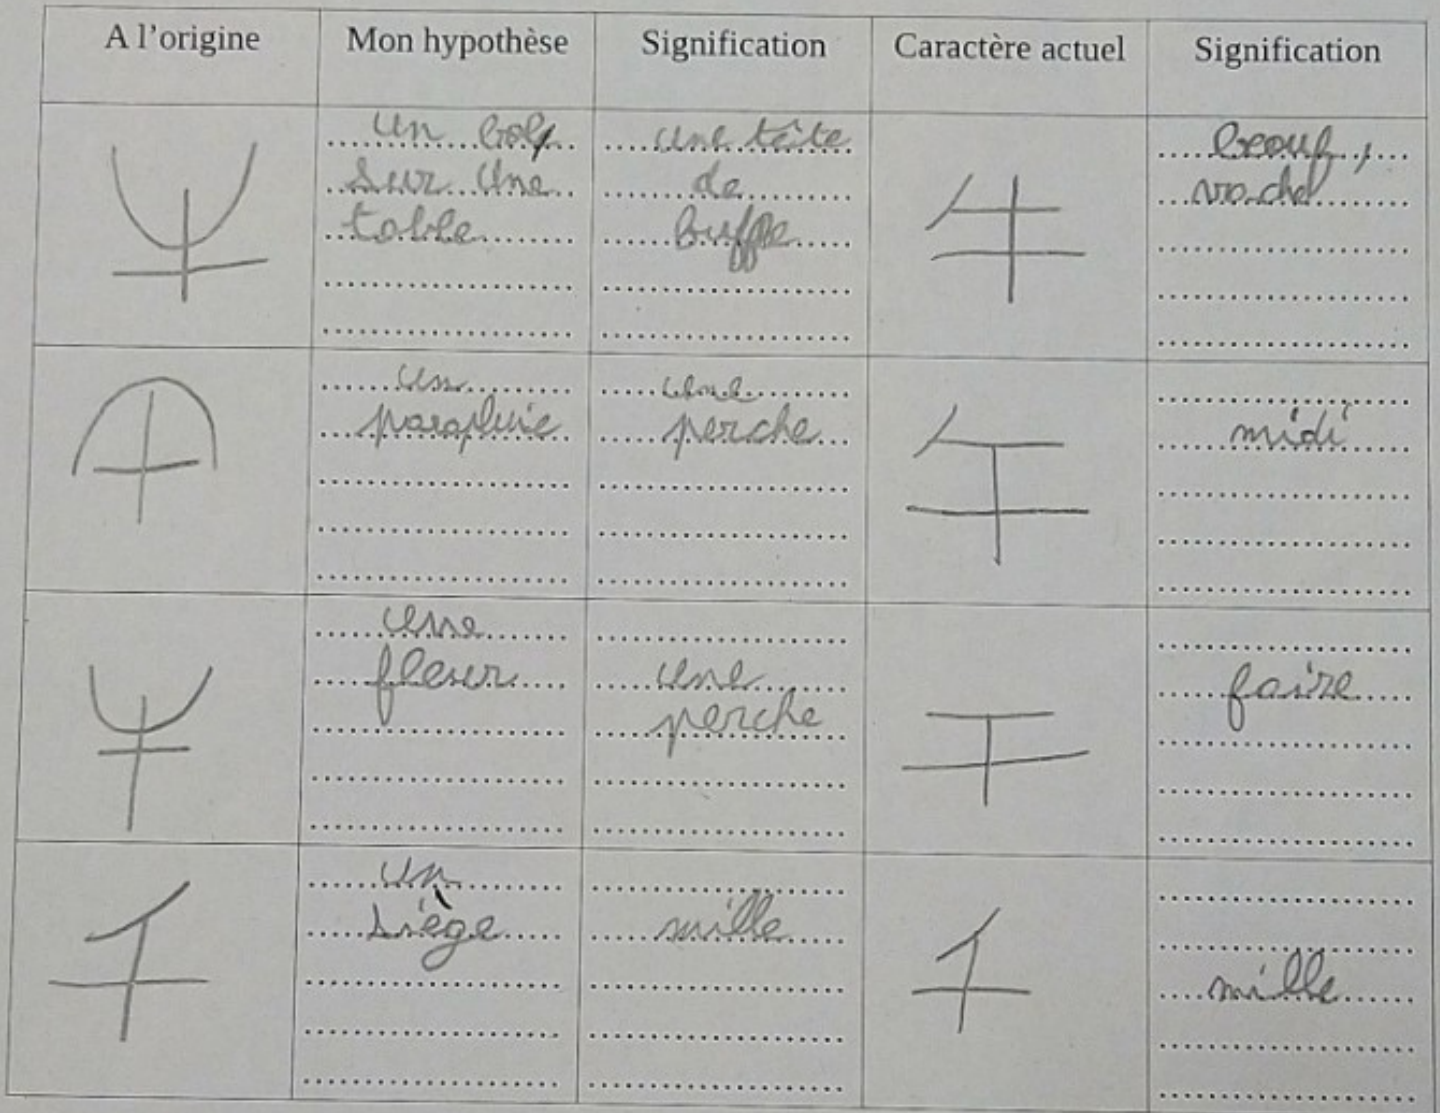 A l'origine Mon hypothèse Signification Caractère actuel Signification
un bol
sur une
table
une tête
de
buffle
牛
beouf,
vache
un
parapluie
une
perche
午
midi
une
fleur
une
perche
干
faire
un
siège
mille
千
mille